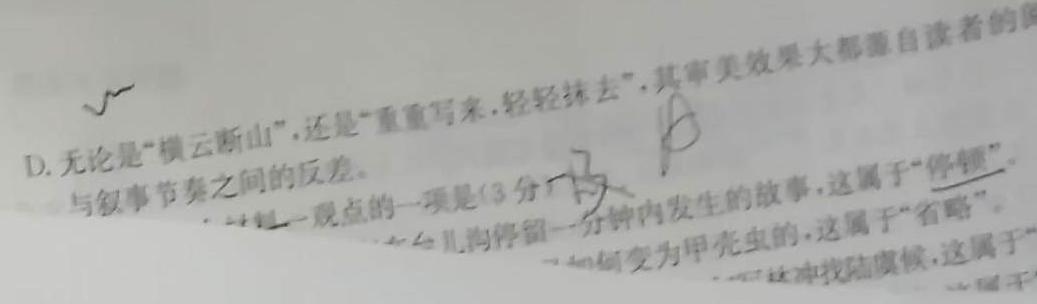 D. 无论是“横云断山”,还是“重重写来,轻轻抹去”,其审美效果大都源自读者的
与叙事节奏之间的反差。
一观点的一项是(3分)
儿沟停留一分钟内发生的故事,这属于“停顿”。
如何变为甲壳虫的,这属于“省略”。
林冲找陆虞候,这属于“